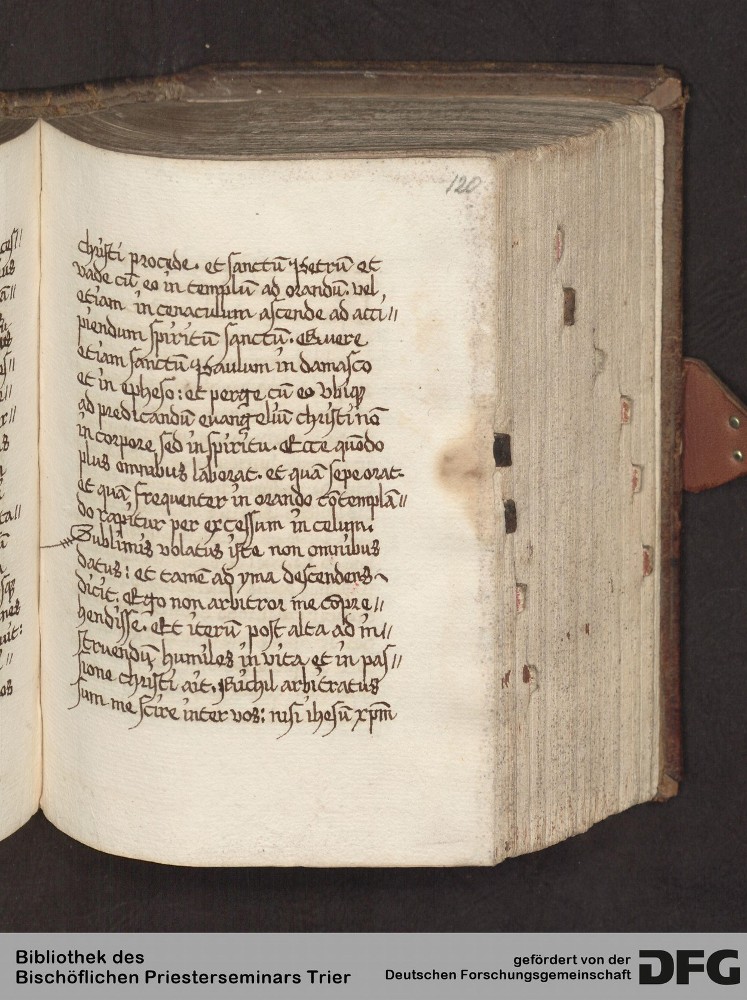 120
christi procede. et sanctū Petrū et
vade cū eo in templū ad orandū. vel
etiam in cenaculum ascende ad acci//
piendum spiritū sanctū. Quere
etiam sanctū Paulum in damasco
et in epheso: et perge cū eo vbiqȝ
ad predicandū euangeliū christi nō
in corpore sed in spiritu. Ecce quōdo
plus omnibus laborat. et quā sepe orat.
et quā frequenter in orando cōtemplā//
do rapitur per excessum in celum.
Sublimis volatus iste non omnibus
datus: et tamē ad yma descendens
dicit. Ego non arbitror me cōpre//
hendisse. Et iterū post alta ad in//
struendū humiles in vita et in pas//
sione christi ait. Nichil arbitratus
sum me scire inter vos: nisi ihesū xpm̄
Bibliothek des
Bischöflichen Priesterseminars Trier
gefördert von der
Deutschen Forschungsgemeinschaft
DFG